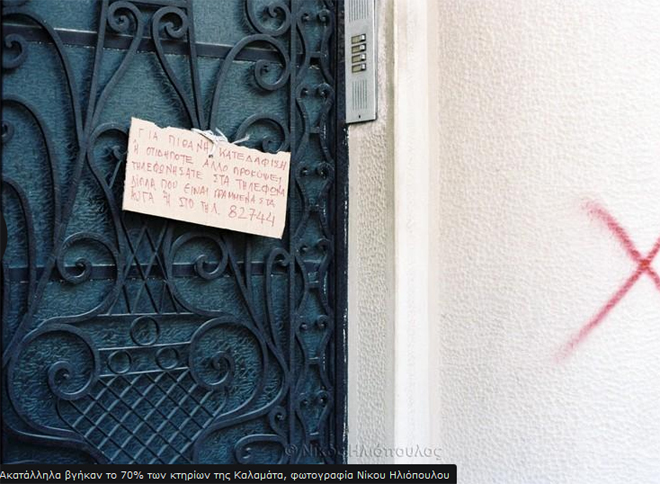 ΓΙΑ ΠΙΘΑΝΗ ΚΑΤΕΔΑΦΙΣΗ
Η ΟΤΙΔΗΠΟΤΕ ΑΛΛΟ ΠΡΟΚΥΨΕΙ
ΤΗΛΕΦΩΝΗΣΑΤΕ ΣΤΑ ΤΗΛΕΦΩΝΑ
ΔΙΠΛΑ ΠΟΥ ΕΙΝΑΙ ΓΡΑΜΜΕΝΑ ΣΤΑ
Η ΣΤΟ ΤΗΛ. 82744
X
© Νίκος Ηλιόπουλος
Ακατάλληλα βγήκαν το 70% των κτηρίων της Καλαμάτα, φωτογραφία Νίκου Ηλιόπουλου